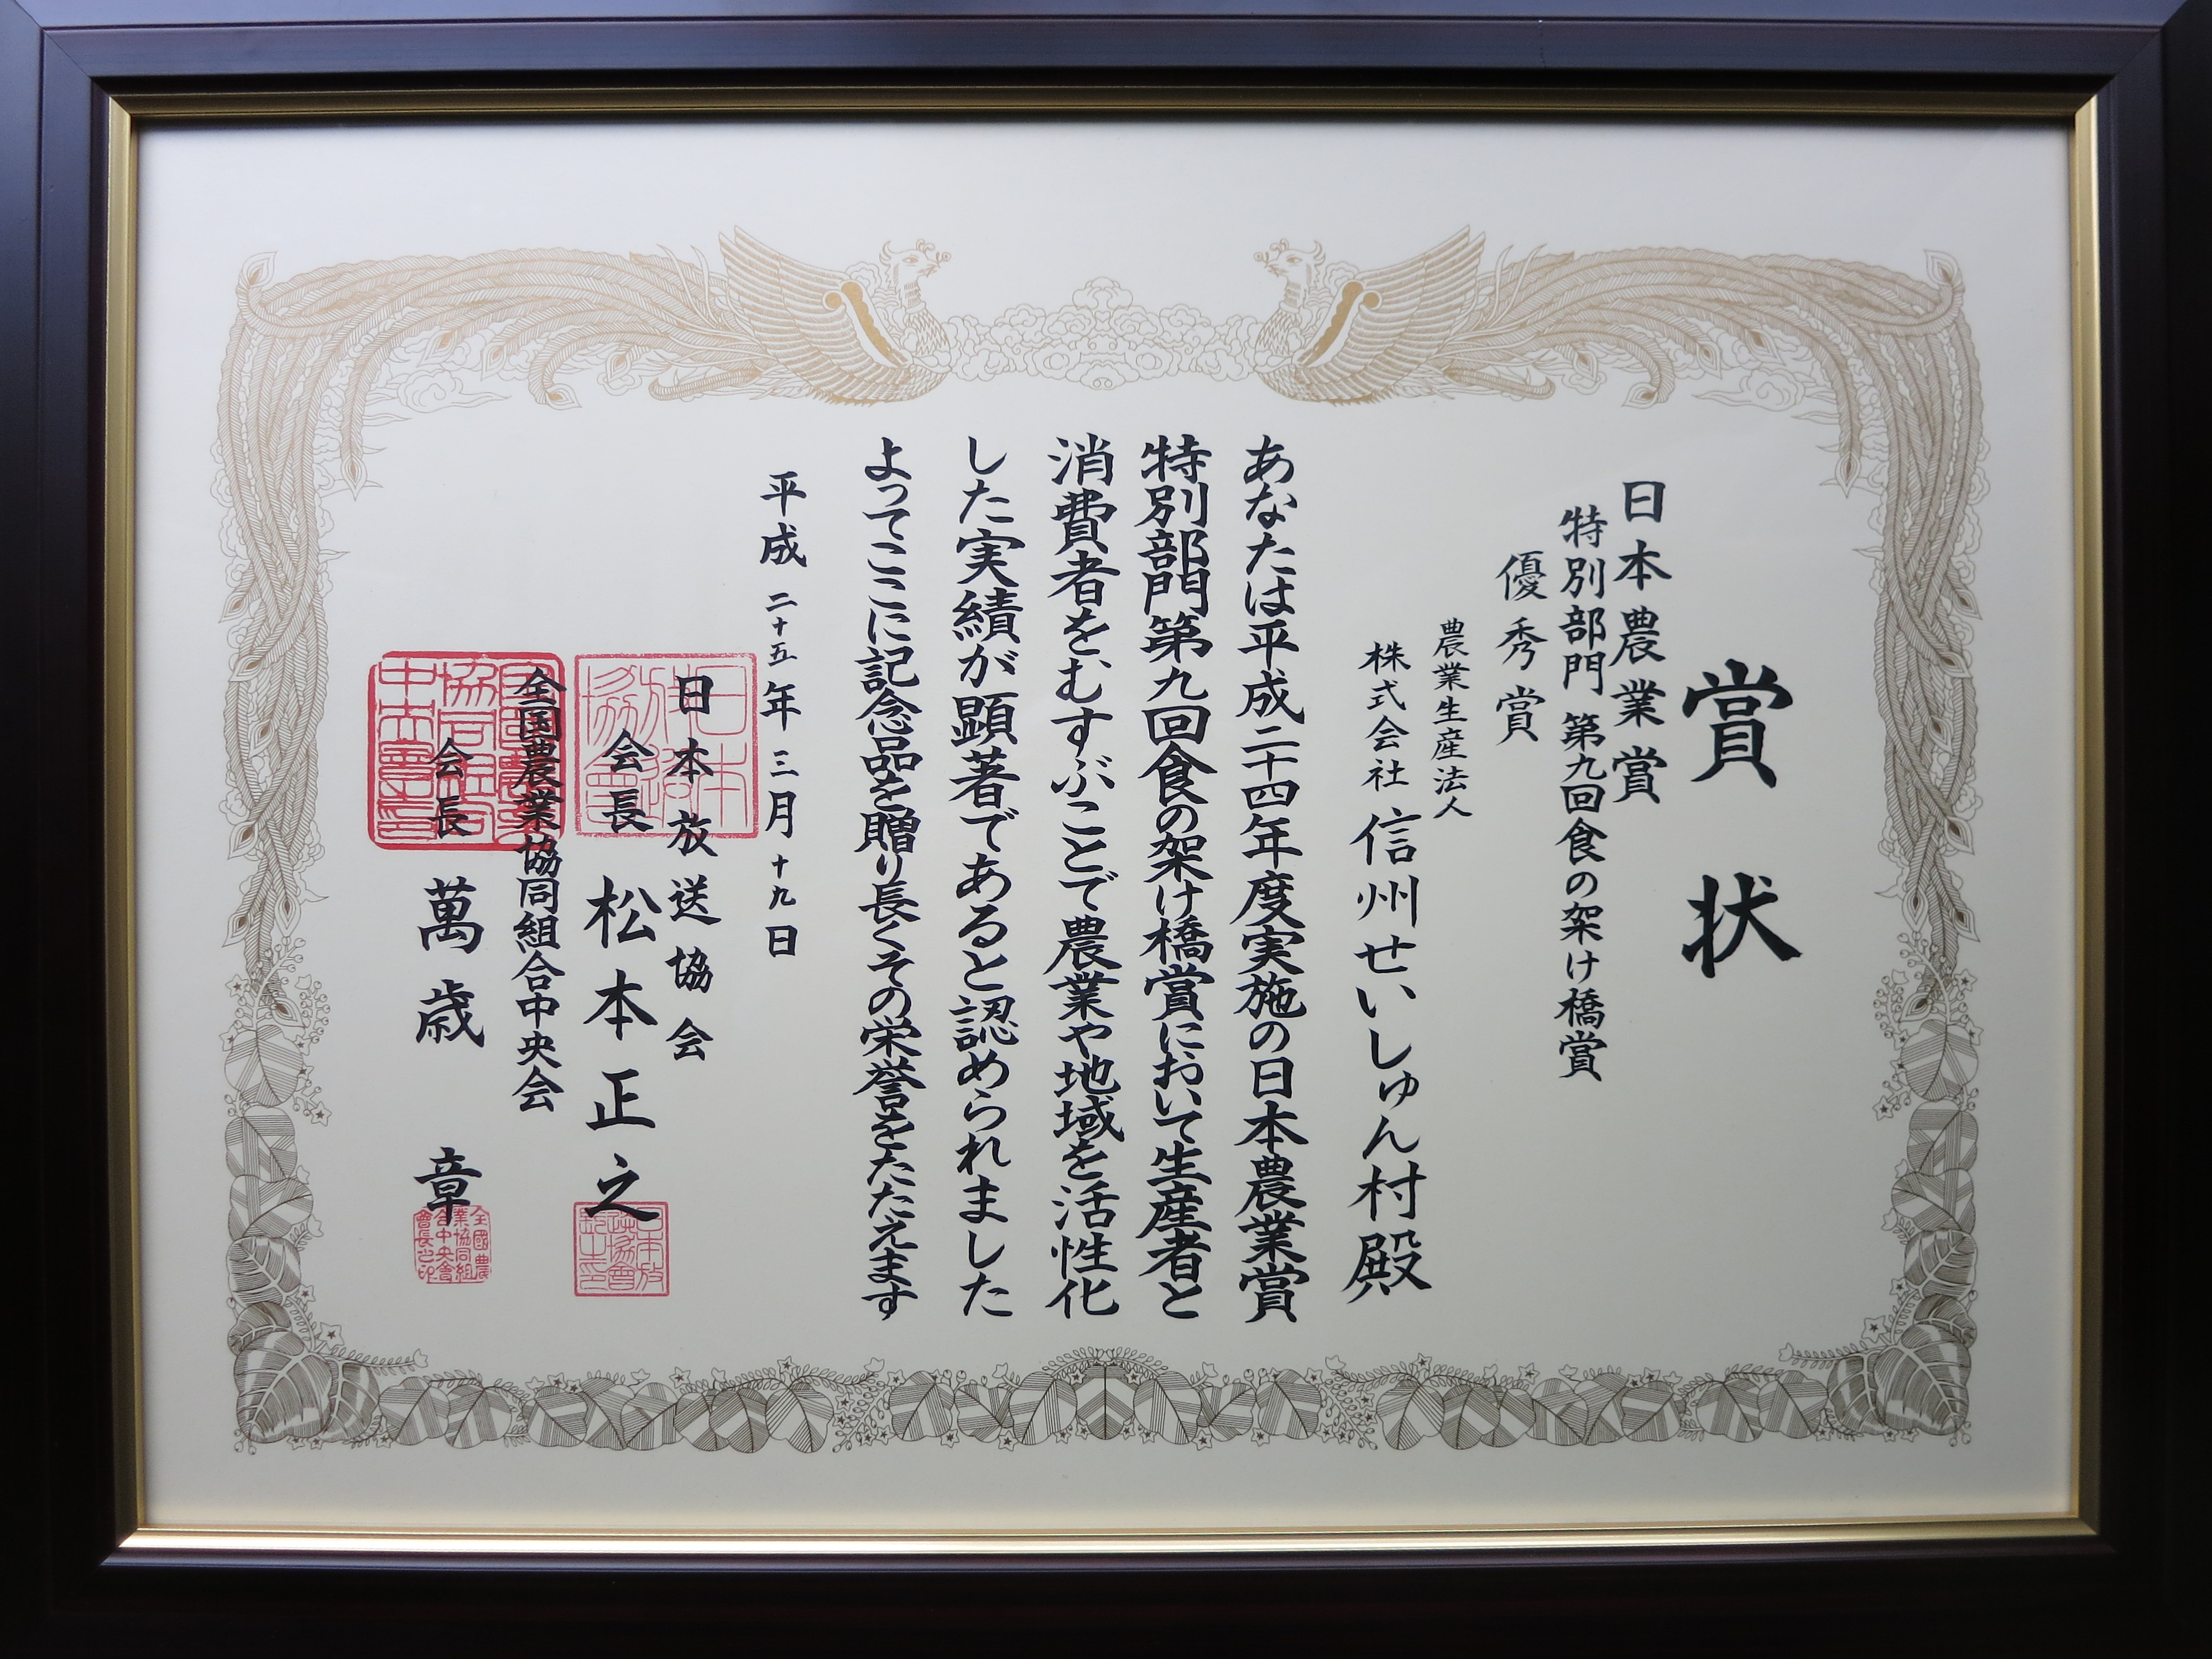 賞状
日本農業賞
特別部門 第九回食の架け橋賞
優秀賞
農業生産法人
株式会社 信州せいしゅん村殿
あなたは平成二十四年度実施の日本農業賞
特別部門第九回食の架け橋賞において生産者と
消費者をむすぶことで農業や地域を活性化
した実績が顕著であると認められました
よってここに記念品を贈り長くその栄誉をたたえます
平成二十五年三月十九日
日本放送協会
会長 松本正之
全国農業協同組合中央会
会長 萬歳章